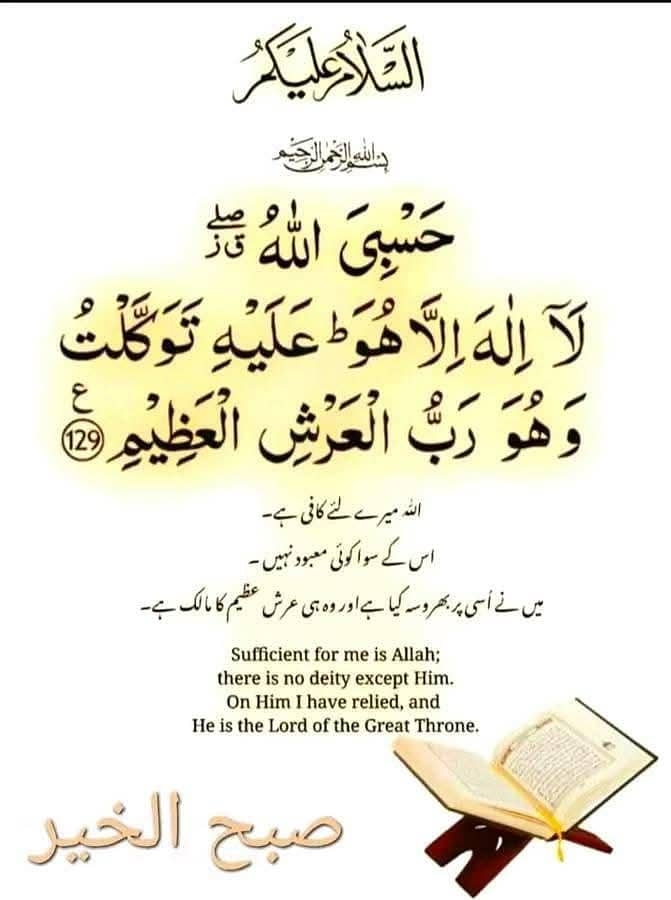 السَّلَامُ عَلَيْكُمُ
بِسْمِ اللهِ الرَّحْمٰنِ الرَّحِيْمِ
حَسْبِيَ اللّٰهُ صلے ق ز
لَاۤ اِلٰهَ اِلَّا هُوَ ؕ عَلَيْهِ تَوَكَّلْتُ
وَ هُوَ رَبُّ الْعَرْشِ الْعَظِيْمِ 129 ع
اللہ میرے لئے کافی ہے۔
اس کے سوا کوئی معبود نہیں۔
میں نے اُسی پر بھروسہ کیا ہے اور وہ ہی عرش عظیم کا مالک ہے۔
Sufficient for me is Allah;
there is no deity except Him.
On Him I have relied, and
He is the Lord of the Great Throne.
صبح الخير